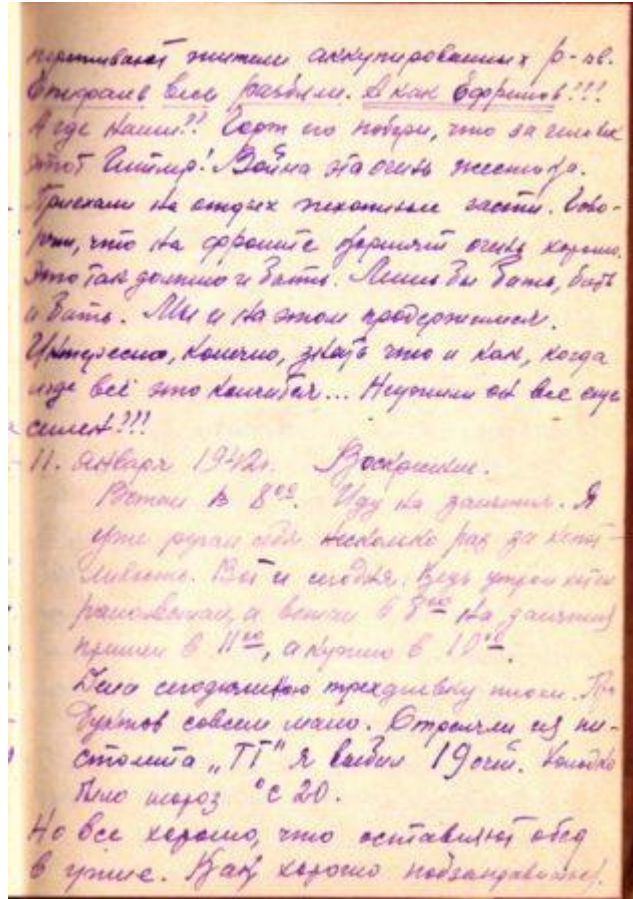 переживают жители аккупированных р-ов.
весь разбили. А как Ефремов!!!
А где наши?! Чорт его побери, что за человек
этот Гитлер! Война эта очень жестока.
Приехали на отдых пехотные части. Гово-
рят, что на фронте кормят очень хорошо.
Это так должно и быть. Лишь бы бить, бить
и бить. Мы и на этом продержимся.
Интересно, конечно, знать что и как, когда
и где всё это кончится... Неужели он все еще
силен!!!
11. января 1942г. Воскресенье.
Встал в 8⁰⁰. Иду на занятия. Я
уже ругал себя несколько раз за
Вот и сегодня. Ведь утром хотел
рано встать, а встал в 8⁰⁰ на занятия
пришел в 11⁰⁰, а нужно в 10⁰⁰.
Дела сегодня трехдневку плохи. Про
дуктов совсем мало. Стреляли из пи-
столета „ТТ" я выбил 19 очей. Холодно
было мороз °С 20.
Но все хорошо, что оставляют обед
и ужин. Как хорошо